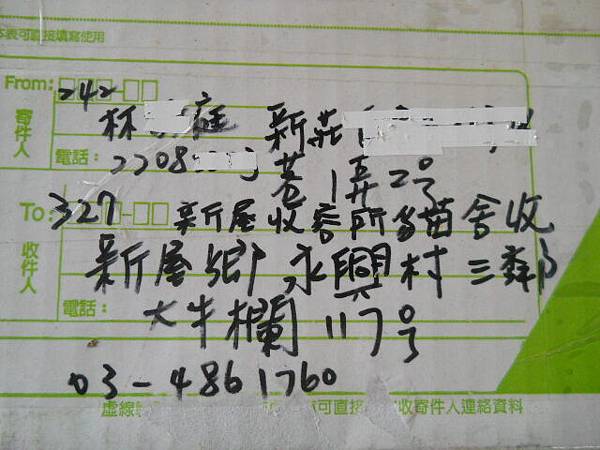 本表可直接填寫使用
From: 242
寄件人
林 庭 新莊
電話: 2208 巷1弄2号
To: 327 新屋收容所貓舍收
收件人
新屋鄉永興村三鄰
電話: 大牛欄117号
03-4861760
虛線 可直接 收寄件人連絡資料